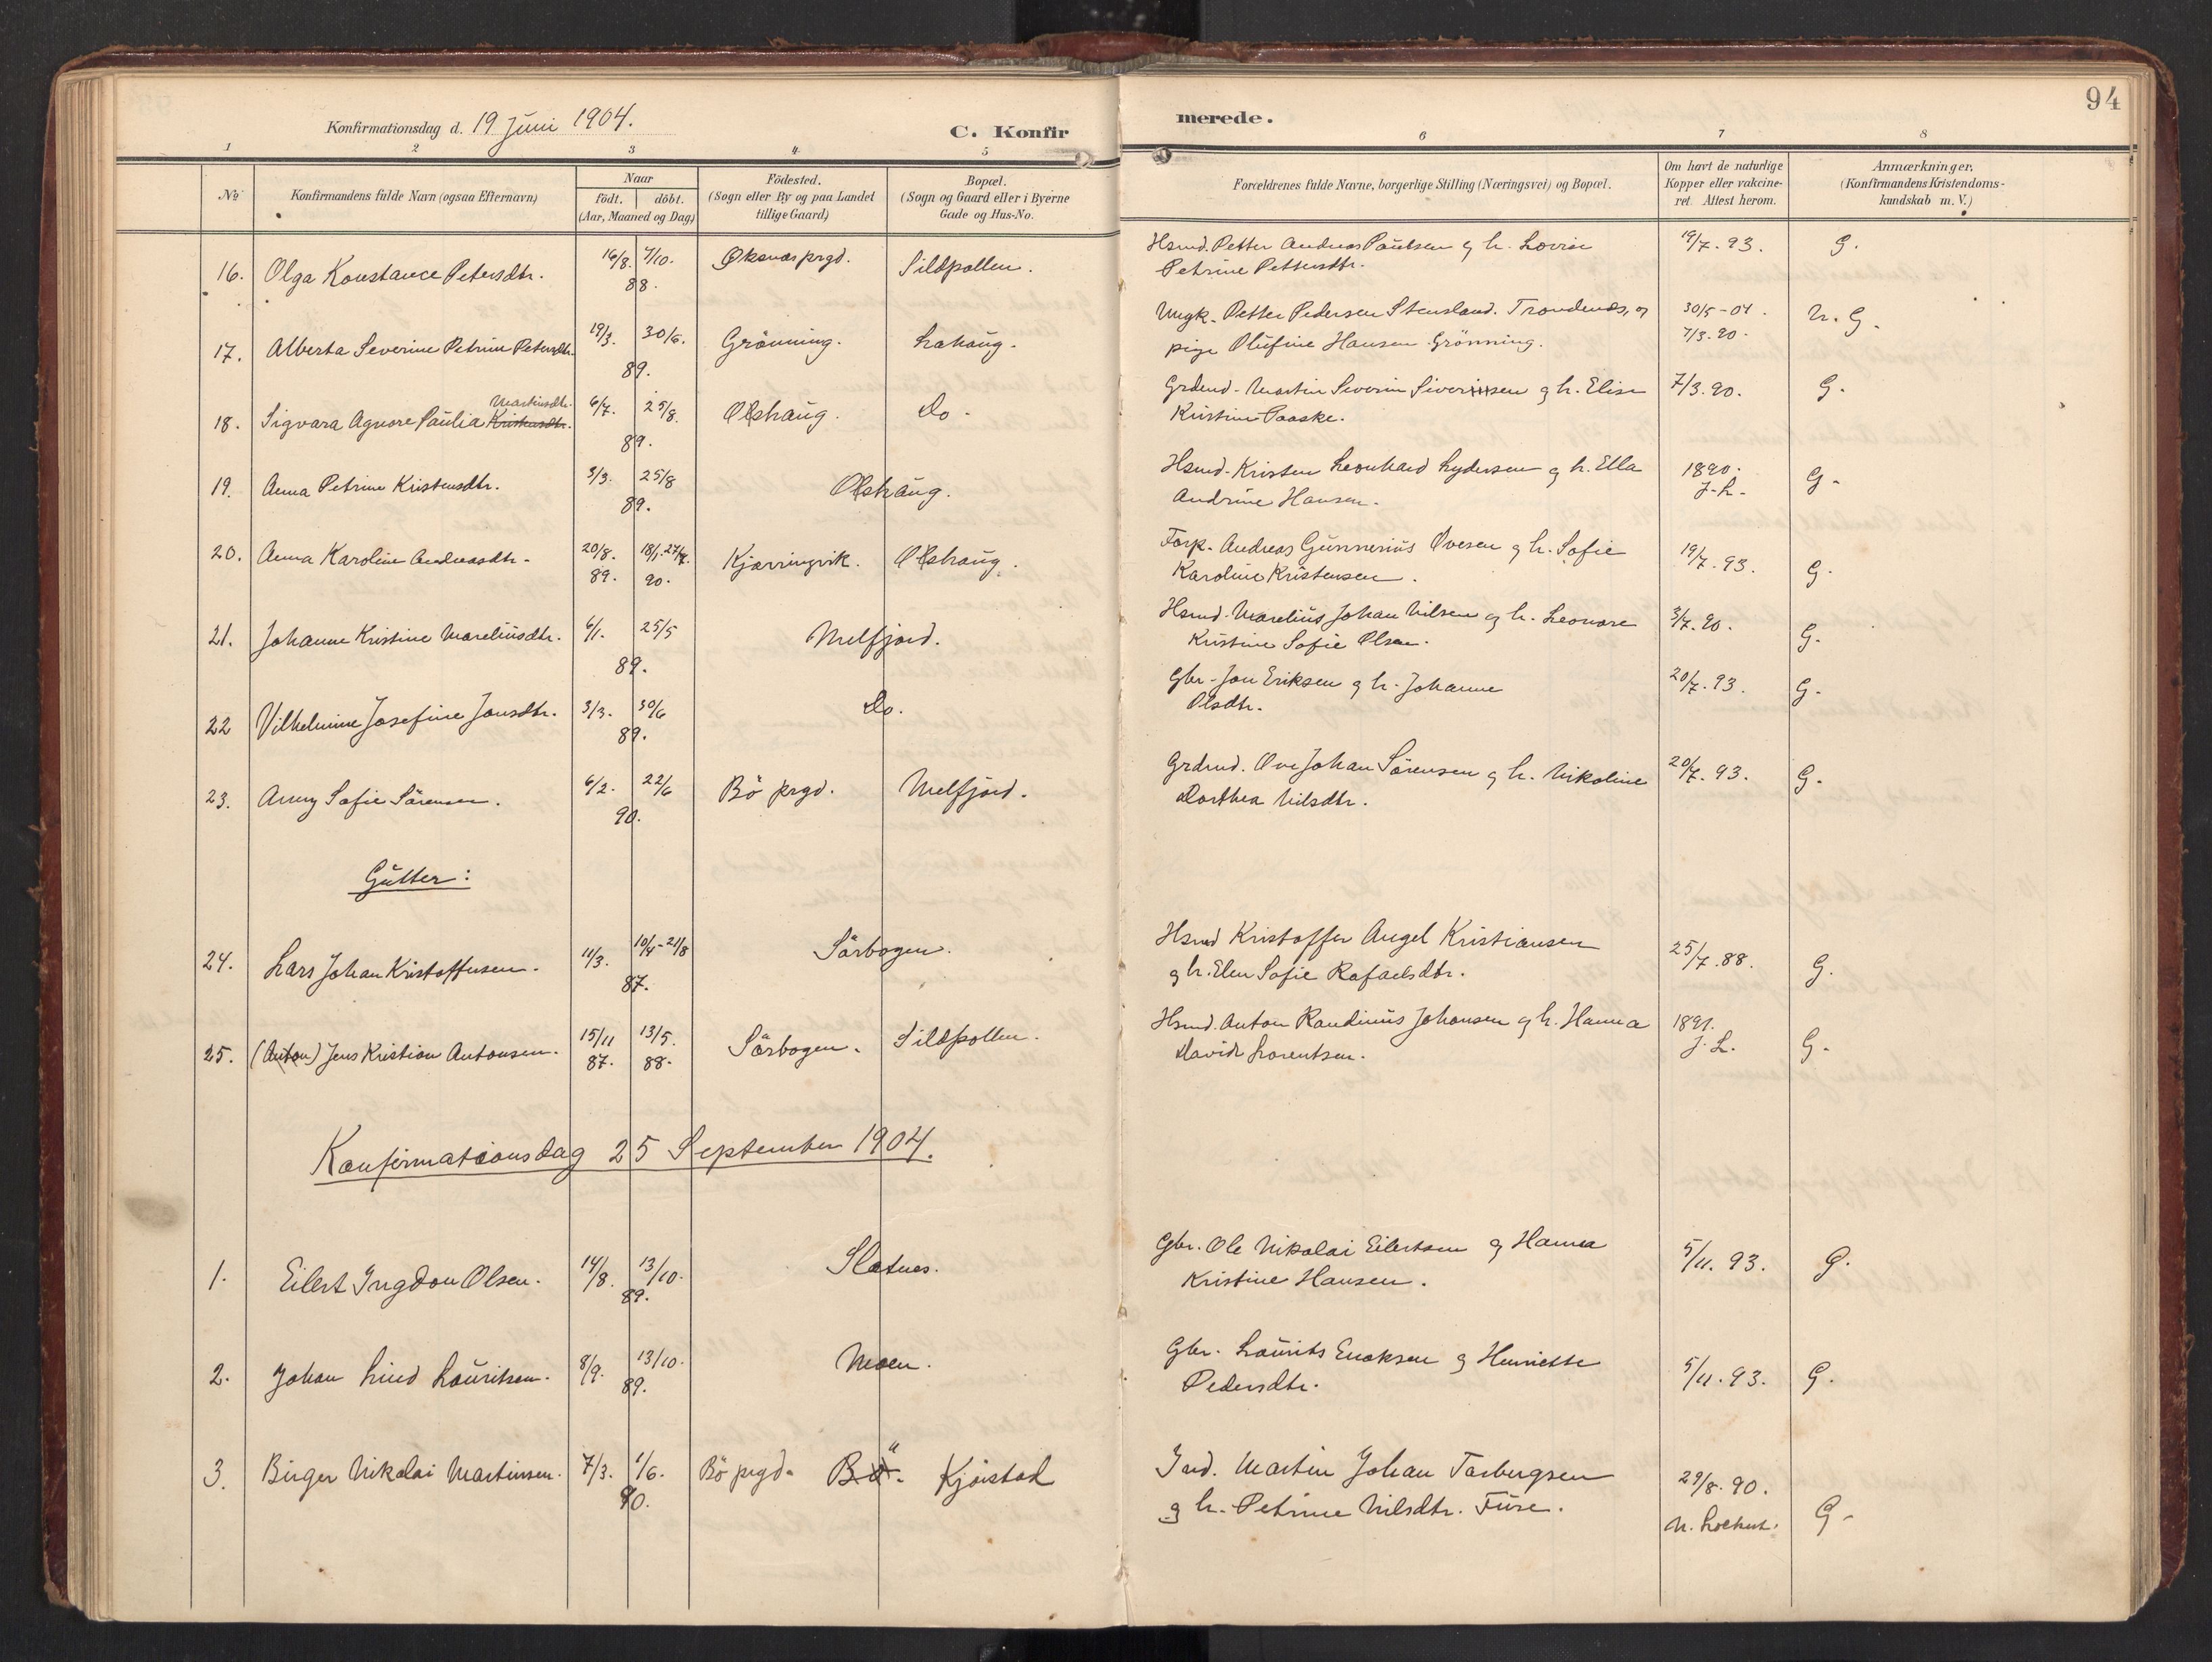 Konfirmationsdag d. 19 Juni 1904.
C. Konfir
merede.
94
1 2 3 4 5 6 7 8
No
Konfirmandens fulde Navn (ogsaa Efternavn)
Naar
födt. döbt.
(Aar, Maaned og Dag)
Födested.
(Sogn eller By og paa Landet
tillige Gaard)
Bopæl.
(Sogn og Gaard eller i Byerne
Gade og Hus-No.
Forældrenes fulde Navne, borgerlige Stilling (Næringsvei) og Bopæl.
Om havt de naturlige
Kopper eller vakcine-
ret. Attest herom.
Anmærkninger.
(Konfirmandens Kristendoms-
kundskab m. V.)
16. Olga Konstance Petersdtr. 16/8. 7/10. 88. Øksnæs prgd. Sildpollen. Hsmd. Petter Andreas Paulsen og h. Lovise 19/7. 93. G.
Petrine Pettersdtr.
17. Alberta Severine Petrine Petersdtr. 19/3. 30/6. 89. Grönning. Lahaug. Ungk. Petter Pedersen Stensland. Trondenæs, og 30/5-04. N. G.
pige Olufine Hansen Grönning. 7/3. 90.
18. Sigvara Agnore Paulia Kristensdtr. Martinsdtr. 6/7. 25/8. 89. Olshaug. Do. Grdmd. Martin Severin Siverinsen og h. Elise 7/3. 90. G.
Kristine Paaske.
19. Anna Petrine Kristensdtr. 3/3. 25/8 89. Olshaug. Hsmd. Kristen Leonhard Lydersen og h. Ella 1890. G.
Andrine Hansen. J. L.
20. Anna Karoline Andreasdtr. 20/8. 89. 18/1. 27/4. 90. Kjærringvik. Olshaug. Forp. Andreas Gunnerius Ovesen og h. Sofie 19/7. 93. G.
Karoline Kristensen.
21. Johanne Kristine Mareliusdtr. 6/1. 25/5 89. Melfjord. Hsmd. Marelius Johan Nilsen og h. Leonore 3/7. 90. G.
Kristine Sofie Olsen.
22 Vilhelmine Josefine Jonsdtr. 3/3. 30/6 89. Do. Gbr. Jon Eriksen og h. Johanne 20/7. 93. G.
Olsdtr.
23. Anny Sofie Sörensen. 6/2. 22/6 90. Bö prgd. Melfjord. Grdmd. Ove Johan Sörensen og h. Nikoline 20/7. 93. G.
Dorthea Nilsdtr.
Gutter:
24. Lars Johan Kristoffersen. 11/3. 10/4-21/8 87. Sörbogen. Hsmd Kristoffer Angel Kristiansen 25/7. 88. G.
og h. Elen Sofie Rafaelsdtr.
25. (Anton) Jens Kristian Antonsen. 15/11 87. 13/5. 88. Sörbogen. Sildpollen. Hsmd. Anton Randinius Johansen og h. Hanna 1891. G.
David Lorentsen. J. L.
Konfirmationsdag 25 September 1904.
1. Eilert Ingdon Olsen. 14/8. 13/10. 89. Slotnes. Gbr. Ole Nikolai Eilertsen og Hanna 5/11. 93. G.
Kristine Hansen.
2. Johan Lind Lauritsen. 8/9. 13/10. 89. Moen. Gbr. Laurits Enoksen og Henriette 5/11. 93. G.
Pedersdtr.
3. Birger Nikolai Martinsen. 7/3. 1/6. 90. Bö prgd. Bö. Kjörstad Ind. Martin Johan Torbergsen 29/8. 90. G.
og h. Petrine Nilsdtr. Fure. N. Lockert.